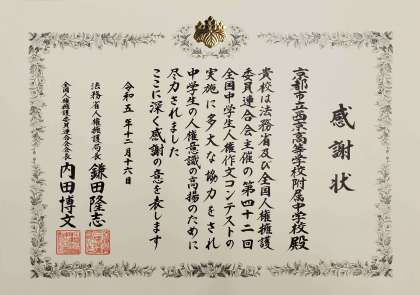 感謝状
京都市立西京高等学校附属中学校殿
貴校は法務省及び全国人権擁護
委員連合会主催の第四十二回
全国中学生人権作文コンテストの
実施に多大な協力をされ
中学生の人権意識の高揚のために
尽力されました
ここに深く感謝の意を表します
令和五年十二月十六日
法務省人権擁護局長 鎌田隆志
全国人権擁護委員連合会会長 内田博文